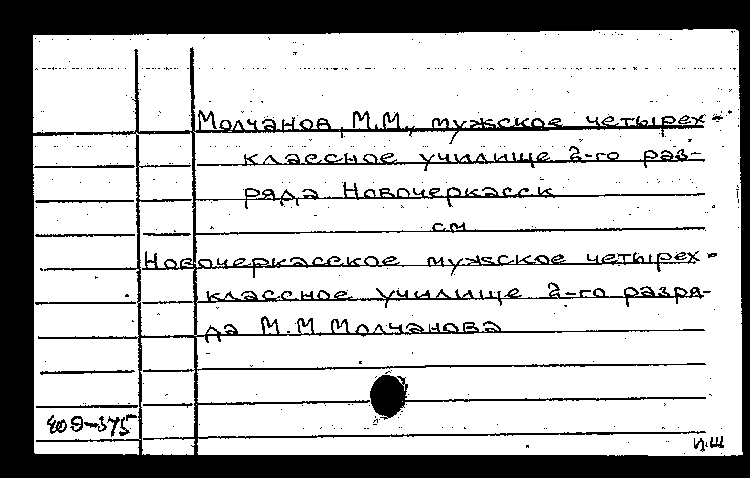 Молчанов, М.М., мужское четырех-
классное училище 2-го раз-
ряда Новочеркасск
см
Новочеркасское мужское четырех-
классное училище 2-го разря-
да М.М.Молчанова
И.Ш